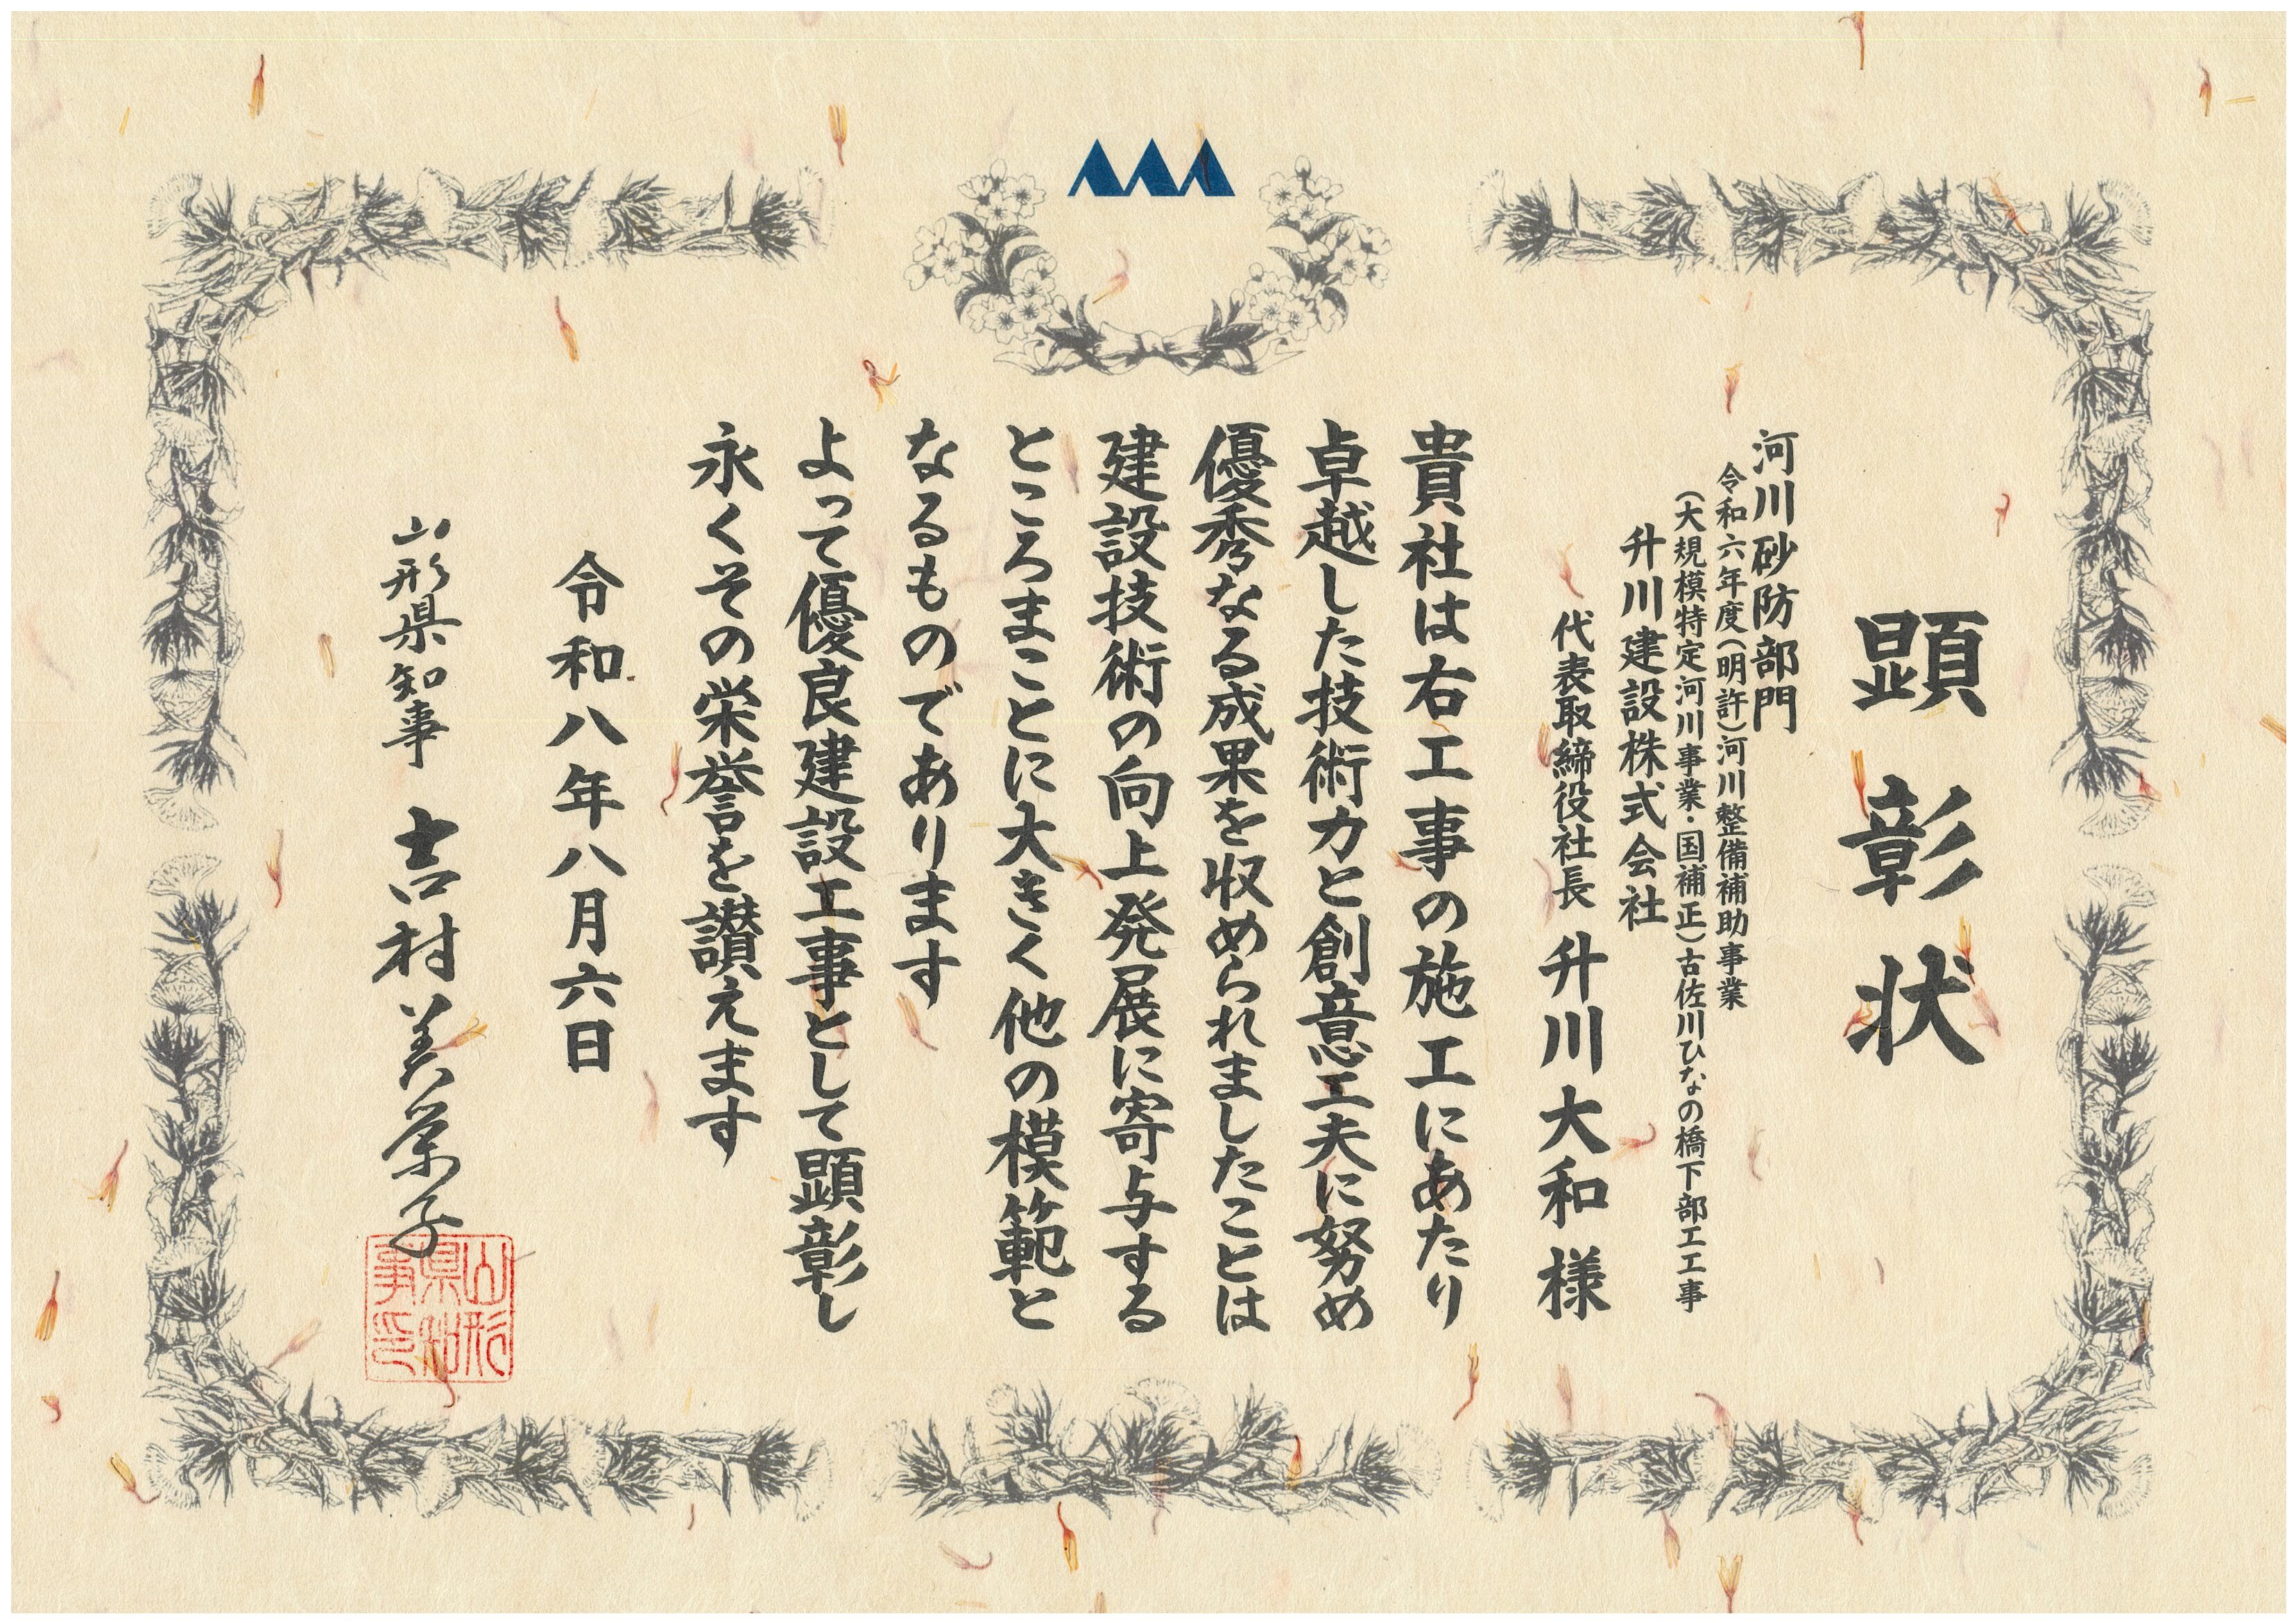 顕彰状
河川砂防部門
令和六年度(明許)河川整備補助事業
(大規模特定河川事業・国補正)古佐川ひなの橋下部工工事
升川建設株式会社
代表取締役社長 升川大和様
貴社は右工事の施工にあたり
卓越した技術力と創意工夫に努め
優秀なる成果を収められましたことは
建設技術の向上発展に寄与する
ところまことに大きく他の模範と
なるものであります
よって優良建設工事として顕彰し
永くその栄誉を讃えます
令和八年八月六日
山形県知事 吉村美栄子
山形県知事印